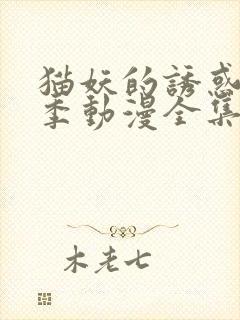 猫妖的誘惑
季動漫全集
木老七